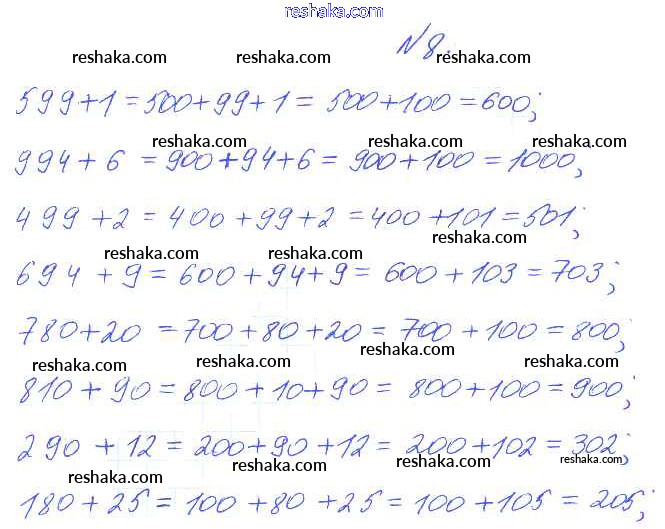 reshaka.com
№8.
reshaka.com reshaka.com reshaka.com
599+1=500+99+1=500+100=600;
reshaka.com reshaka.com reshaka.com
994+6=900+94+6=900+100=1000;
reshaka.com reshaka.com reshaka.com
499+2=400+99+2=400+101=501;
reshaka.com reshaka.com reshaka.com
694+9=600+94+9=600+103=703;
reshaka.com reshaka.com reshaka.com
780+20=700+80+20=700+100=800;
reshaka.com reshaka.com reshaka.com reshaka.com
810+90=800+10+90=800+100=900;
reshaka.com reshaka.com reshaka.com
290+12=200+90+12=200+102=302;
reshaka.com reshaka.com reshaka.com reshaka.com
180+25=100+80+25=100+105=205;